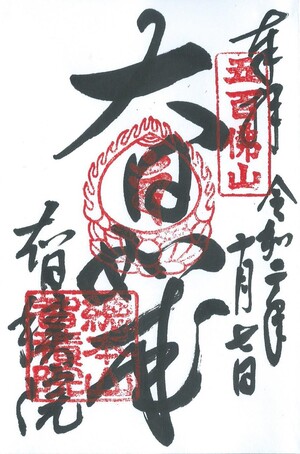 奉拝
五百佛山
令和二年
十月七日
大日如来
智積院
總本山
智積院